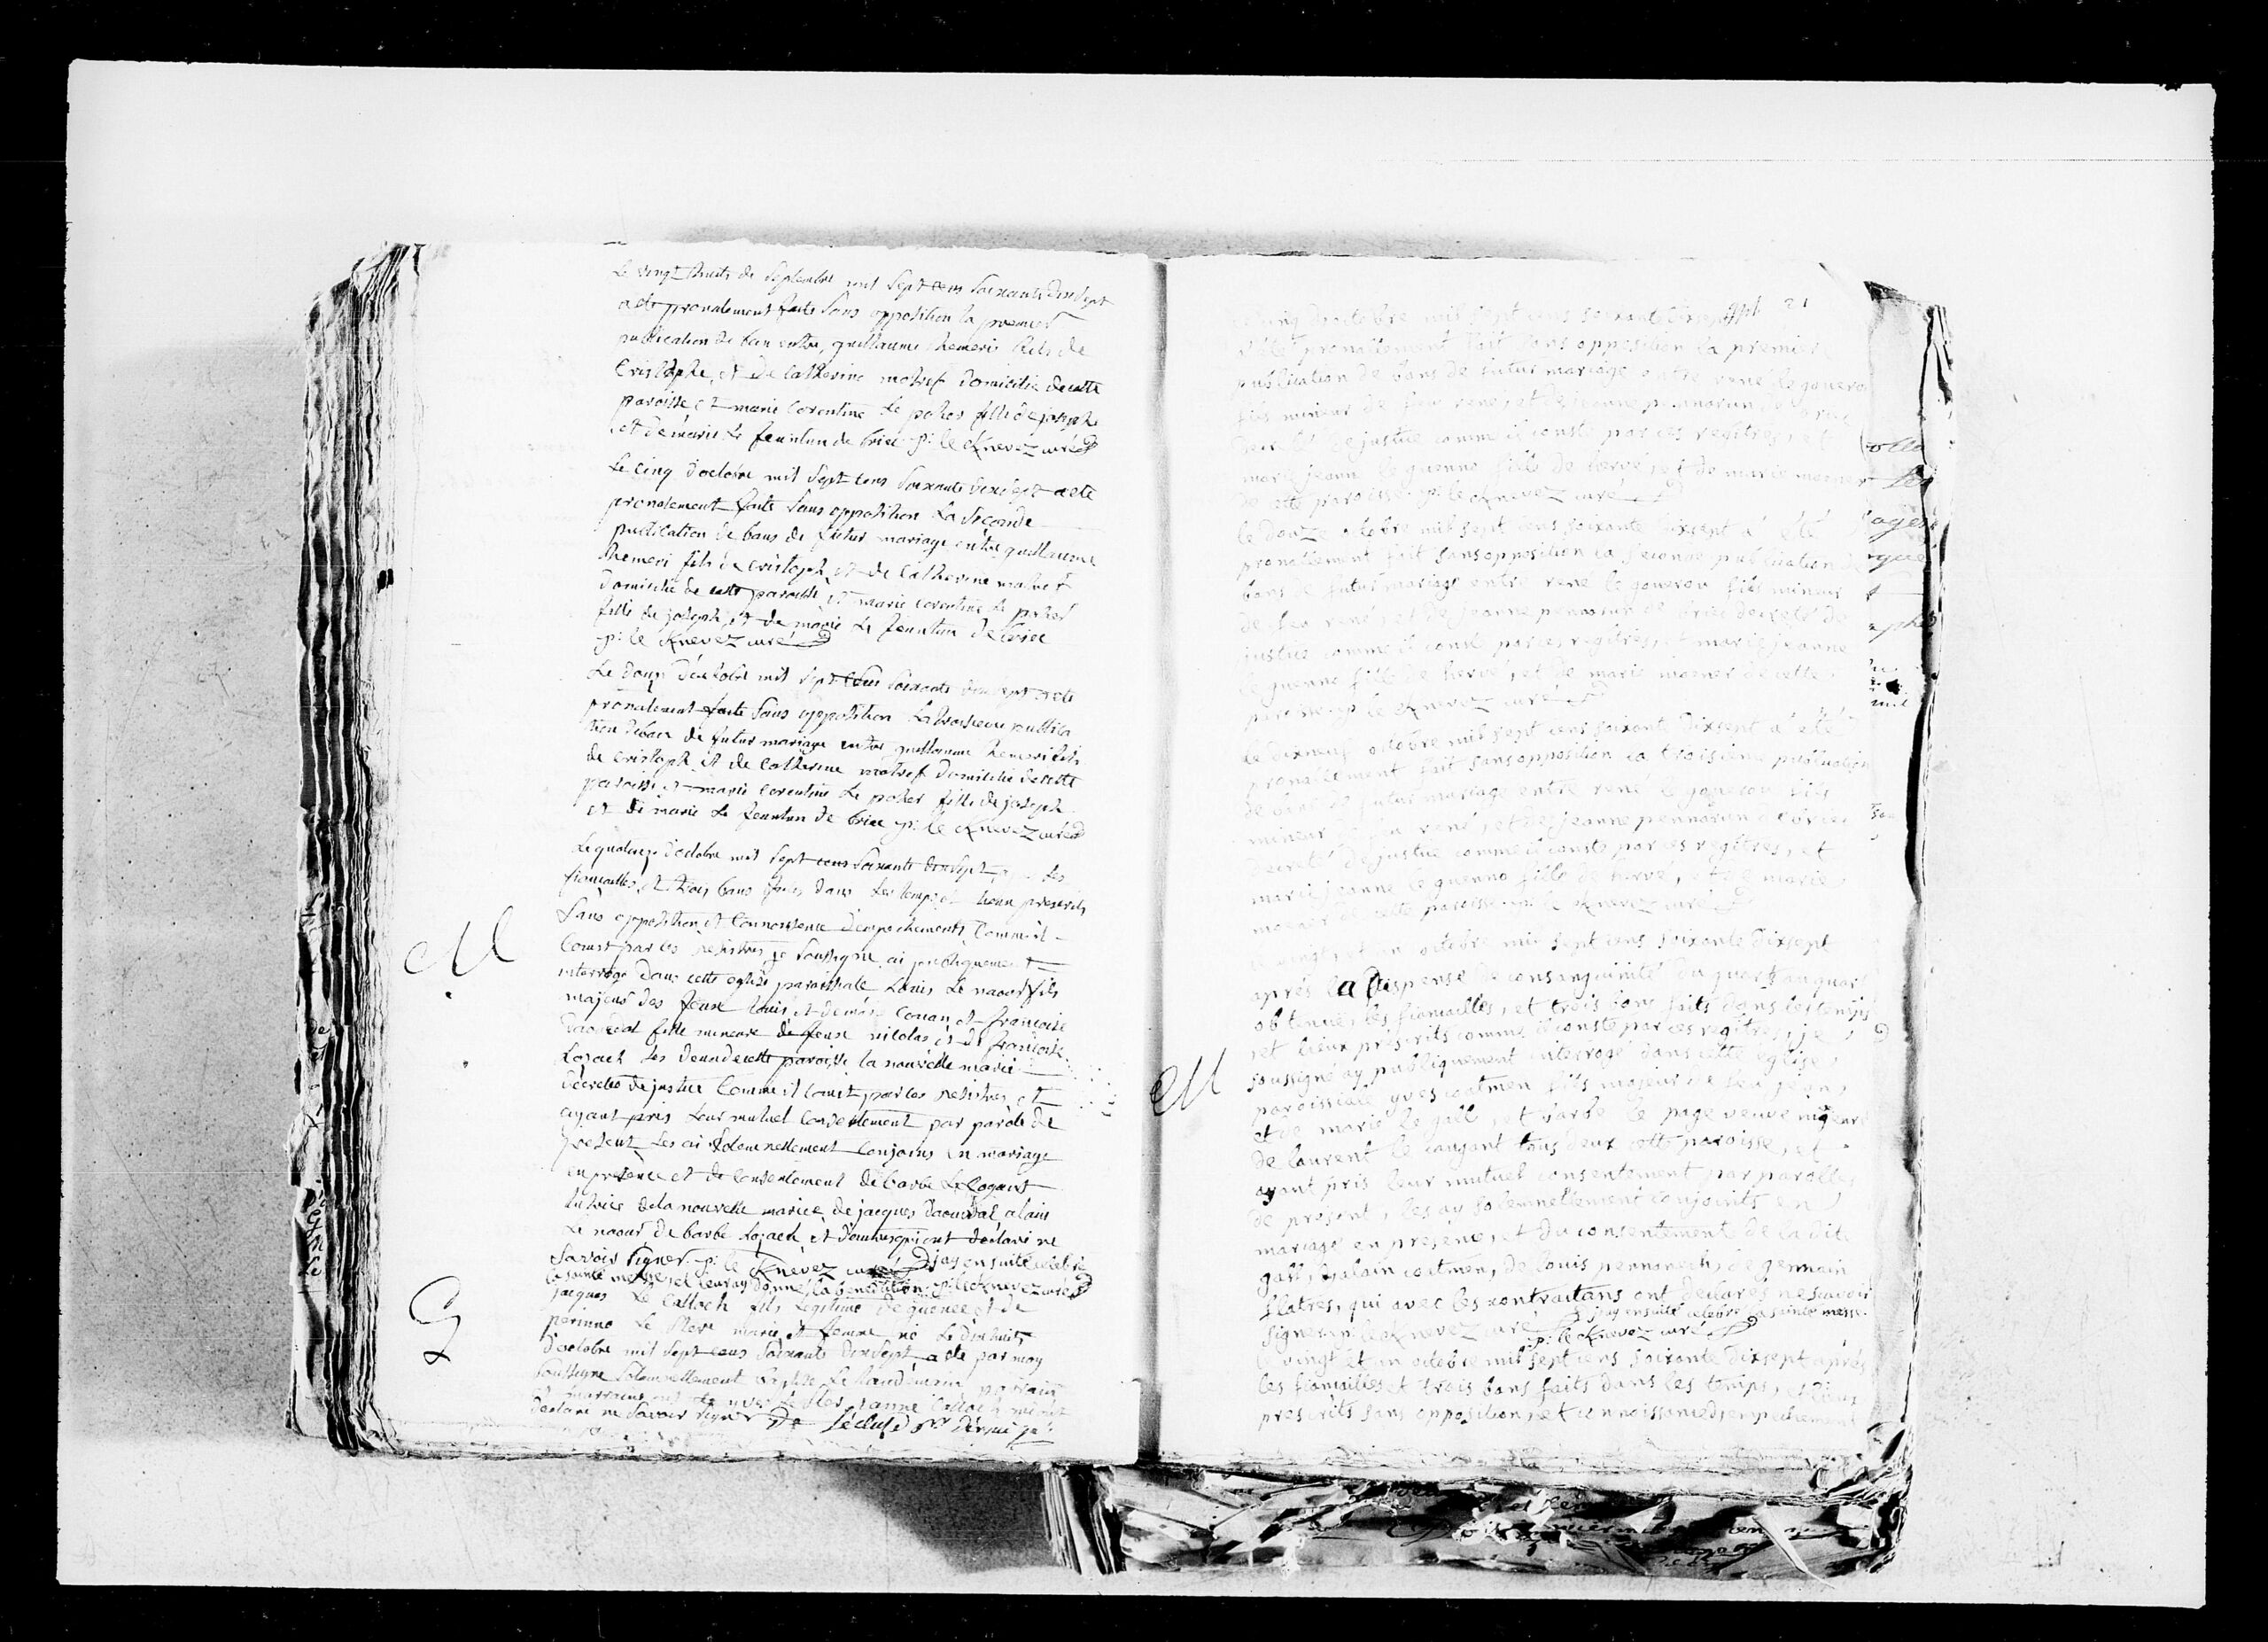 Le vingt huits de septembre mil sept cens soixante dixsept
a ete pronalement faite sans opposition la premier
publication de ban entre, guillaume hemeri fils de
Cristophe, et de Catherine motref domicilié de cette
paroisse et marie Corentine Le poher fille de joseph
et de marie Le feuntun de briec p: le Knevez curé
Le cinq d'octobre mil sept cens soixante dixsept a ete
pronalement faite sans opposition La seconde
publication de bans de futur mariage entre guillaume
hemeri fils de Cristoph, et de Catherine motref
domicilié de cette paroisse et marie Corentine Le poher
fille de joseph, et de marie Le feuntun de briec
p: le Knevez curé
Le douze d'octobre mil sept cens soixante dixsept a ete
pronalement faite sans opposition La troisieme publica
tion de ban de futur mariage entre guillaume hemeri fils
de Cristoph et de Catherine motref domicilié de cette
paroisse et marie Corentine Le poher fille de joseph
et de marie Le feuntun de briec p: le Knevez curé
M
Le quatorze d'octobre mil sept cens soixante dixsept, les
fiançailles, et trois bans faits dans les temps et lieux prescrits
sans opposition, et connoissence d'empechements, Comme il
Const par les resistres, je soussigné ai publiquement
interrogé dans cette eglise paroissiale Louis Le naour fils
majeur des feux Louis, et de marie Conan, et françoise
Daouidal fille mineure de feux nicolas et de françoise
Lozach les deux de cette paroisse la nouvelle mariée
décretee de justice Comme il Const par les resistres, et
ayant pris Leur mutuel Consentement par parole de
present Les ai solemnellement Conjoins en mariage
en presence et de Consentement de barbe Le Cogant
tutrice de la nouvelle mariee, de jacques Daouidal, alain
Le naour, de barbe Lozach et d'autres qui ont declaré ne
savoir signer. p: le Knevez curé j'ay ensuite celebré
la sainte messe, et leur ay donné la benediction. p: le Knevez curé
G
jacques Le Calloch fils Legitime de guenec et de
perinne Le Mere mariés et femme né Le dixhuit
d'octobre mil sept cens soixante dixsept, a ete par moy
soussigné solemnellement baptisé Le landemain parrain
et marraine ont ete yves Le Mer, janne Calloch
declaré ne savoir signer De Lécluse
cinq d'octobre mil sept cens soixante dixsept 21
a été pronallement fait sans opposition la premiere
publication de bans de futur mariage entre rene le goueron
fils mineur de feu rene, et de jeanne pennarun de briec
de justice comme il conste par ces regitres, et
marie jeanne le guenno fille de hervé, et de marie moener
de cette paroisse. p: le Knevez curé
le douze octobre mil sept cens soixante dixsept a été
pronallement fait sans opposition la seconde publication de
bans de futur mariage entre rene le goueron fils mineur
de feu rené, et de jeanne pennarun de briec decreté de
justice comme il conste par ces regitres, et marie jeanne
le guenno fille de hervé, et de marie moener de cette
paroisse. p: le Knevez curé
le dixneuf octobre mil sept cens soixante dixsept a été
pronallement fait sans opposition la troisieme publication
de bans de futur mariage entre rené le goueron fils
mineur de feu rené, et de jeanne pennarun de briec
decreté de justice comme il conste par ces regitres, et
marie jeanne le guenno fille de hervé, et de marie
moener de cette paroisse. p: le Knevez curé
M
le vingt et un octobre mil sept cens soixante dixsept
après la dispense de consanguinité du quart au quart
obtenue, les fiançailles, et trois bans faits dans les temps
et lieux prescrits comme il conste par ces regitres, je
soussigné ay publiquement interrogé dans cette eglise
paroissiale yves coatmen fils majeur de feu jean
et de marie le gall, et barbe le page veuve majeure
de laurent le caugant tous deux cette paroisse, et
ayant pris leur mutuel consentement par parolles
de present, les ay solemnellement conjoints en
mariage en presence, et du consentement de la dite
gall, d'alain coatmen, de louis pennanech, de germain
flatres, qui avec les contractans ont declarés ne scavoir
signer. p: le Knevez curé j'ay ensuite celebré la sainte messe.
p: le Knevez curé
le vingt et un octobre mil sept cens soixante dixsept après
les fiançailles et trois bans faits dans les temps, et lieux
prescrits sans opposition, et connoissance d'empechement